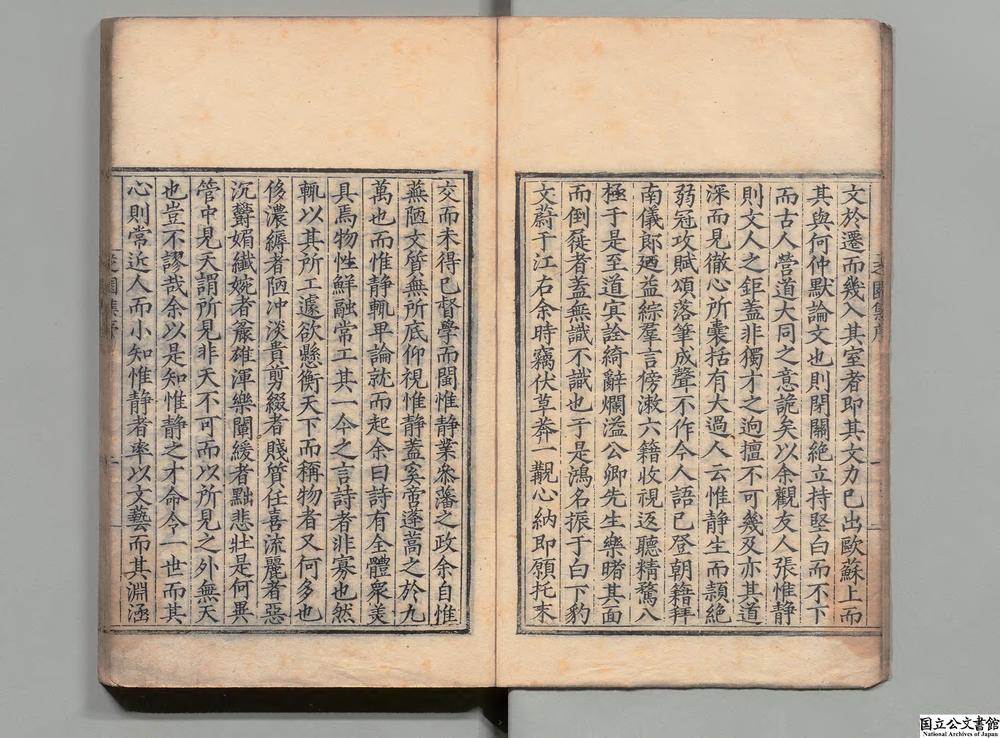 文於遷而幾入其室者即其文力已出歐蘇上而
其與何仲默論文也則閉關絶立持堅白而不下
而古人營道大同之意詭矣以余觀友人張惟静
則文人之鉅蓋非獨才之逈擅不可幾及亦其道
深而見徹心所囊括有大過人云惟静生而頴絶
弱冠攻賦頌落筆成聲不作今人語已登朝籍拜
南儀郎廼益綜羣言傍漱六籍收視返聽精騖八
極于是至道㝠詮綺辭爛溢公卿先生樂睹其面
而倒屣者蓋無識不識也于是鴻名振于白下豹
文蔚于江右余時竊伏草莽一覯心納即願托末
交而未得已督學而閩惟静業叅藩之政余自惟
蕪陋文質無所底仰視惟静蓋奚啻蓬蒿之於九
萬也而惟静輒畢論就而起余曰詩有全體衆美
具焉物性鮮融常工其一今之言詩者非寡也然
輒以其所工遽欲懸衡天下而稱物者又何多也
侈濃縟者陋沖淡貴剪綴者賤質任喜流麗者惡
沉欝媚纎婉者麄雄渾樂闡緩者黜悲壯是何異
管中見天謂所見非天不可而以所見之外無天
也豈不謬哉余以是知惟静之才命今一世而其
心則常近人而小知惟静者率以文藝而其淵涵
国立公文書館
National Archives of Japan